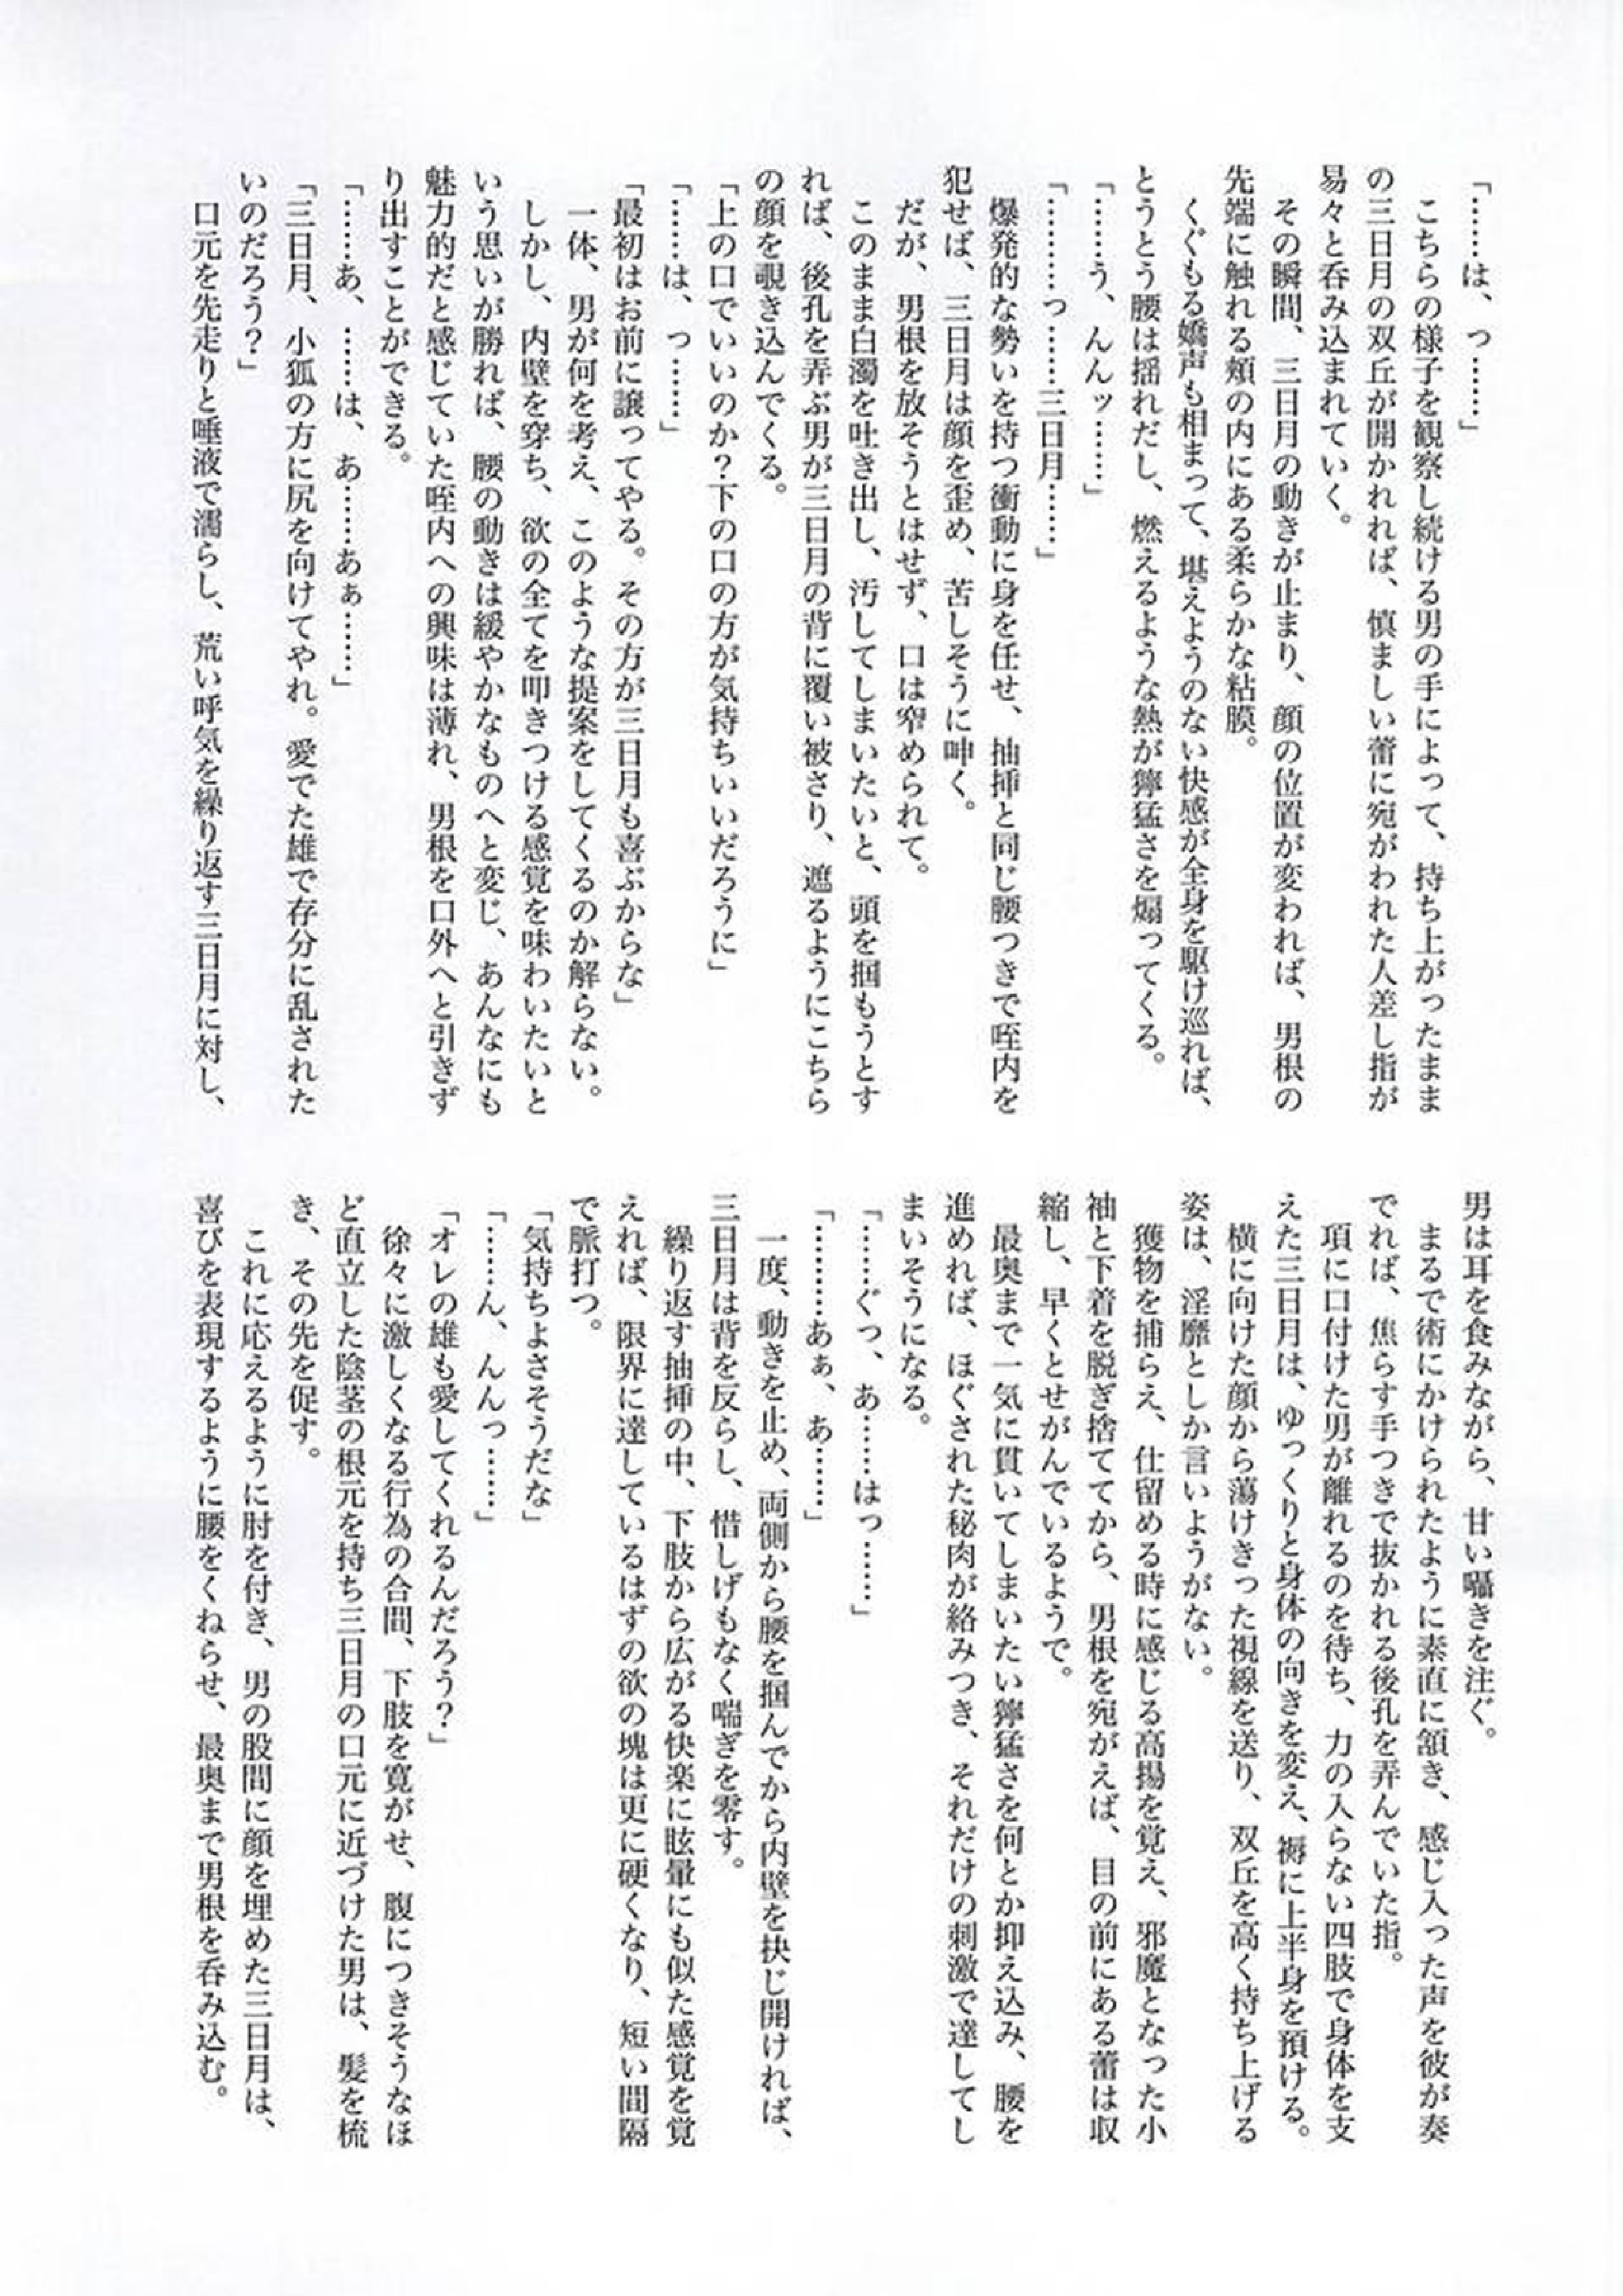 「……は、っ……」
こちらの様子を観察し続ける男の手によって、持ち上がったまま
の三日月の双丘が開かれれば、慎ましい蕾に宛がわれた人差し指が
易々と呑み込まれていく。
その瞬間、三日月の動きが止まり、顔の位置が変われば、男根の
先端に触れる頬の内にある柔らかな粘膜。
くぐもる嬌声も相まって、堪えようのない快感が全身を駆け巡れば、
とうとう腰は揺れだし、燃えるような熱が獰猛さを煽ってくる。
「……う、んんッ……」
「………っ……三日月……」
爆発的な勢いを持つ衝動に身を任せ、抽挿と同じ腰つきで咥内を
犯せば、三日月は顔を歪め、苦しそうに呻く。
だが、男根を放そうとはせず、口は窄められて。
このまま白濁を吐き出し、汚してしまいたいと、頭を掴もうとす
れば、後孔を弄ぶ男が三日月の背に覆い被さり、遮るようにこちら
の顔を覗き込んでくる。
「上の口でいいのか？下の口の方が気持ちいいだろうに」
「……は、っ……」
「最初はお前に譲ってやる。その方が三日月も喜ぶからな」
一体、男が何を考え、このような提案をしてくるのか解らない。
しかし、内壁を穿ち、欲の全てを叩きつける感覚を味わいたいと
いう思いが勝れば、腰の動きは緩やかなものへと変じ、あんなにも
魅力的だと感じていた咥内への興味は薄れ、男根を口外へと引きず
り出すことができる。
「……あ、……は、あ……あぁ……」
「三日月、小狐の方に尻を向けてやれ。愛でた雄で存分に乱された
いのだろう？」
口元を先走りと唾液で濡らし、荒い呼気を繰り返す三日月に対し、
男は耳を食みながら、甘い囁きを注ぐ。
まるで術にかけられたように素直に頷き、感じ入った声を彼が奏
でれば、焦らす手つきで抜かれる後孔を弄んでいた指。
項に口付けた男が離れるのを待ち、力の入らない四肢で身体を支
えた三日月は、ゆっくりと身体の向きを変え、褥に上半身を預ける。
横に向けた顔から蕩けきった視線を送り、双丘を高く持ち上げる
姿は、淫靡としか言いようがない。
獲物を捕らえ、仕留める時に感じる高揚を覚え、邪魔となった小
袖と下着を脱ぎ捨ててから、男根を宛がえば、目の前にある蕾は収
縮し、早くとせがんでいるようで。
最奥まで一気に貫いてしまいたい獰猛さを何とか抑え込み、腰を
進めれば、ほぐされた秘肉が絡みつき、それだけの刺激で達してし
まいそうになる。
「……ぐっ、あ……はっ……」
「………あぁ、あ……」
一度、動きを止め、両側から腰を掴んでから内壁を抉じ開ければ、
三日月は背を反らし、惜しげもなく喘ぎを零す。
繰り返す抽挿の中、下肢から広がる快楽に眩暈にも似た感覚を覚
えれば、限界に達しているはずの欲の塊は更に硬くなり、短い間隔
で脈打つ。
「気持ちよさそうだな」
「……ん、んんっ……」
「オレの雄も愛してくれるんだろう？」
徐々に激しくなる行為の合間、下肢を寛がせ、腹につきそうなほ
ど直立した陰茎の根元を持ち三日月の口元に近づけた男は、髪を梳
き、その先を促す。
これに応えるように肘を付き、男の股間に顔を埋めた三日月は、
喜びを表現するように腰をくねらせ、最奥まで男根を呑み込む。